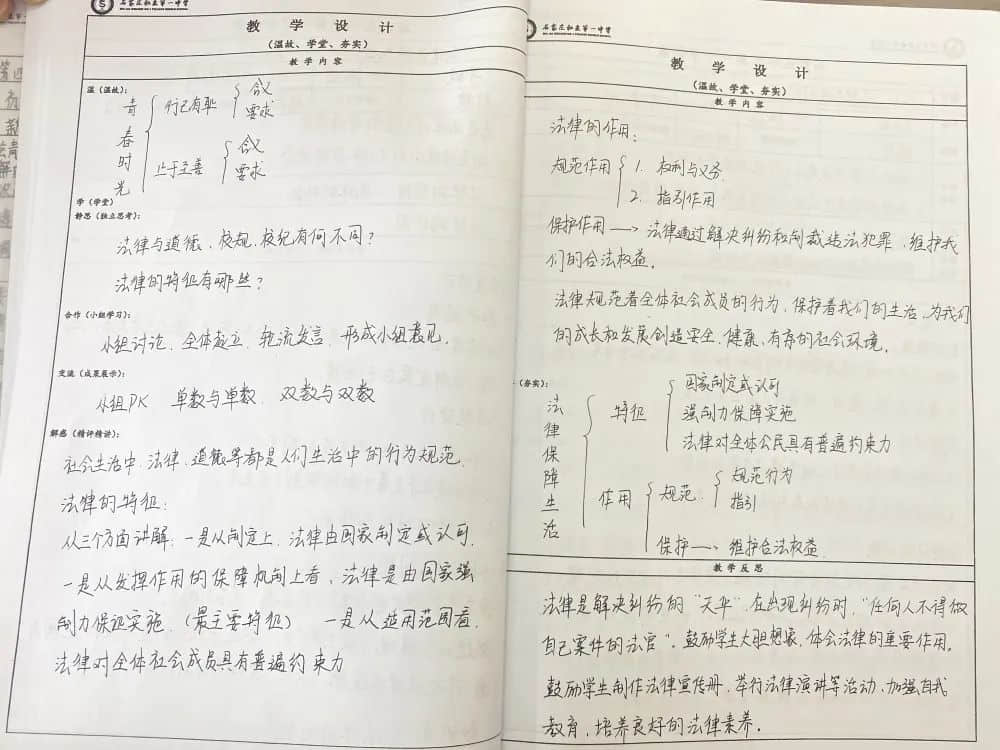 石家庄私立第一中学
教 学 设 计
（温故、学堂、夯实）
教 学 内 容
温（温故）：
青春时光
行己有耻
含义
要求
止于至善
含义
要求
学（学堂）
静思（独立思考）：
法律与道德、校规、校纪有何不同？
法律的特征有哪些？
合作（小组学习）：
小组讨论、全体起立、轮流发言、形成小组意见。
交流（成果展示）：
小组PK 单数与单数、双数与双数
解惑（精评精讲）：
社会生活中，法律、道德等都是人们生活中的行为规范。
法律的特征：
从三个方面讲解：一是从制定上，法律由国家制定或认可，
一是从发挥作用的保障机制上看，法律是由国家强
制力保证实施（最主要特征） 一是从适用范围看，
法律对全体社会成员具有普遍约束力
石家庄私立第一中学
教 学 设 计
（温故、学堂、夯实）
教 学 内 容
法律的作用：
规范作用
1. 权利与义务
2. 指引作用
保护作用→法律通过解决纠纷和制裁违法犯罪，维护我
们的合法权益。
法律规范着全体社会成员的行为，保护着我们的生活，为我们
的成长和发展创造安全、健康、有序的社会环境。
（夯实）：
法律保障生活
特征
国家制定或认可
强制力保障实施
法律对全体公民具有普遍约束力
作用
规范
规范行为
指引
保护→维护合法权益
教 学 反 思
法律是解决纠纷的“天平”，在出现纠纷时，“任何人不得做
自己案件的法官”。鼓励学生大胆想象，体会法律的重要作用。
鼓励学生制作法律宣传册，举行法律演讲等活动，加强自我
教育，培养良好的法律素养。